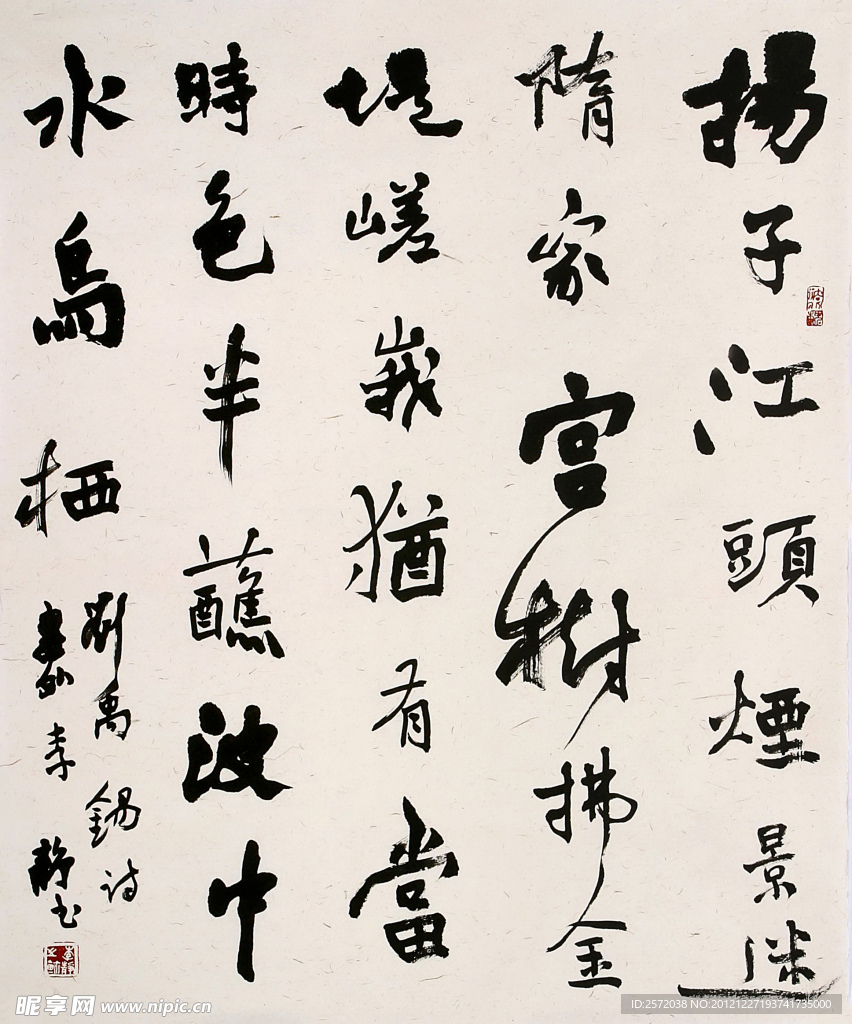 揚子江頭煙景迷
隋家宮樹拂金
堤嵯峨猶有當
時色半蘸波中
水鳥栖
劉禹錫詩
李靜书
昵享网 www.nipic.cn
ID:2572038 NO:20121227193741735000